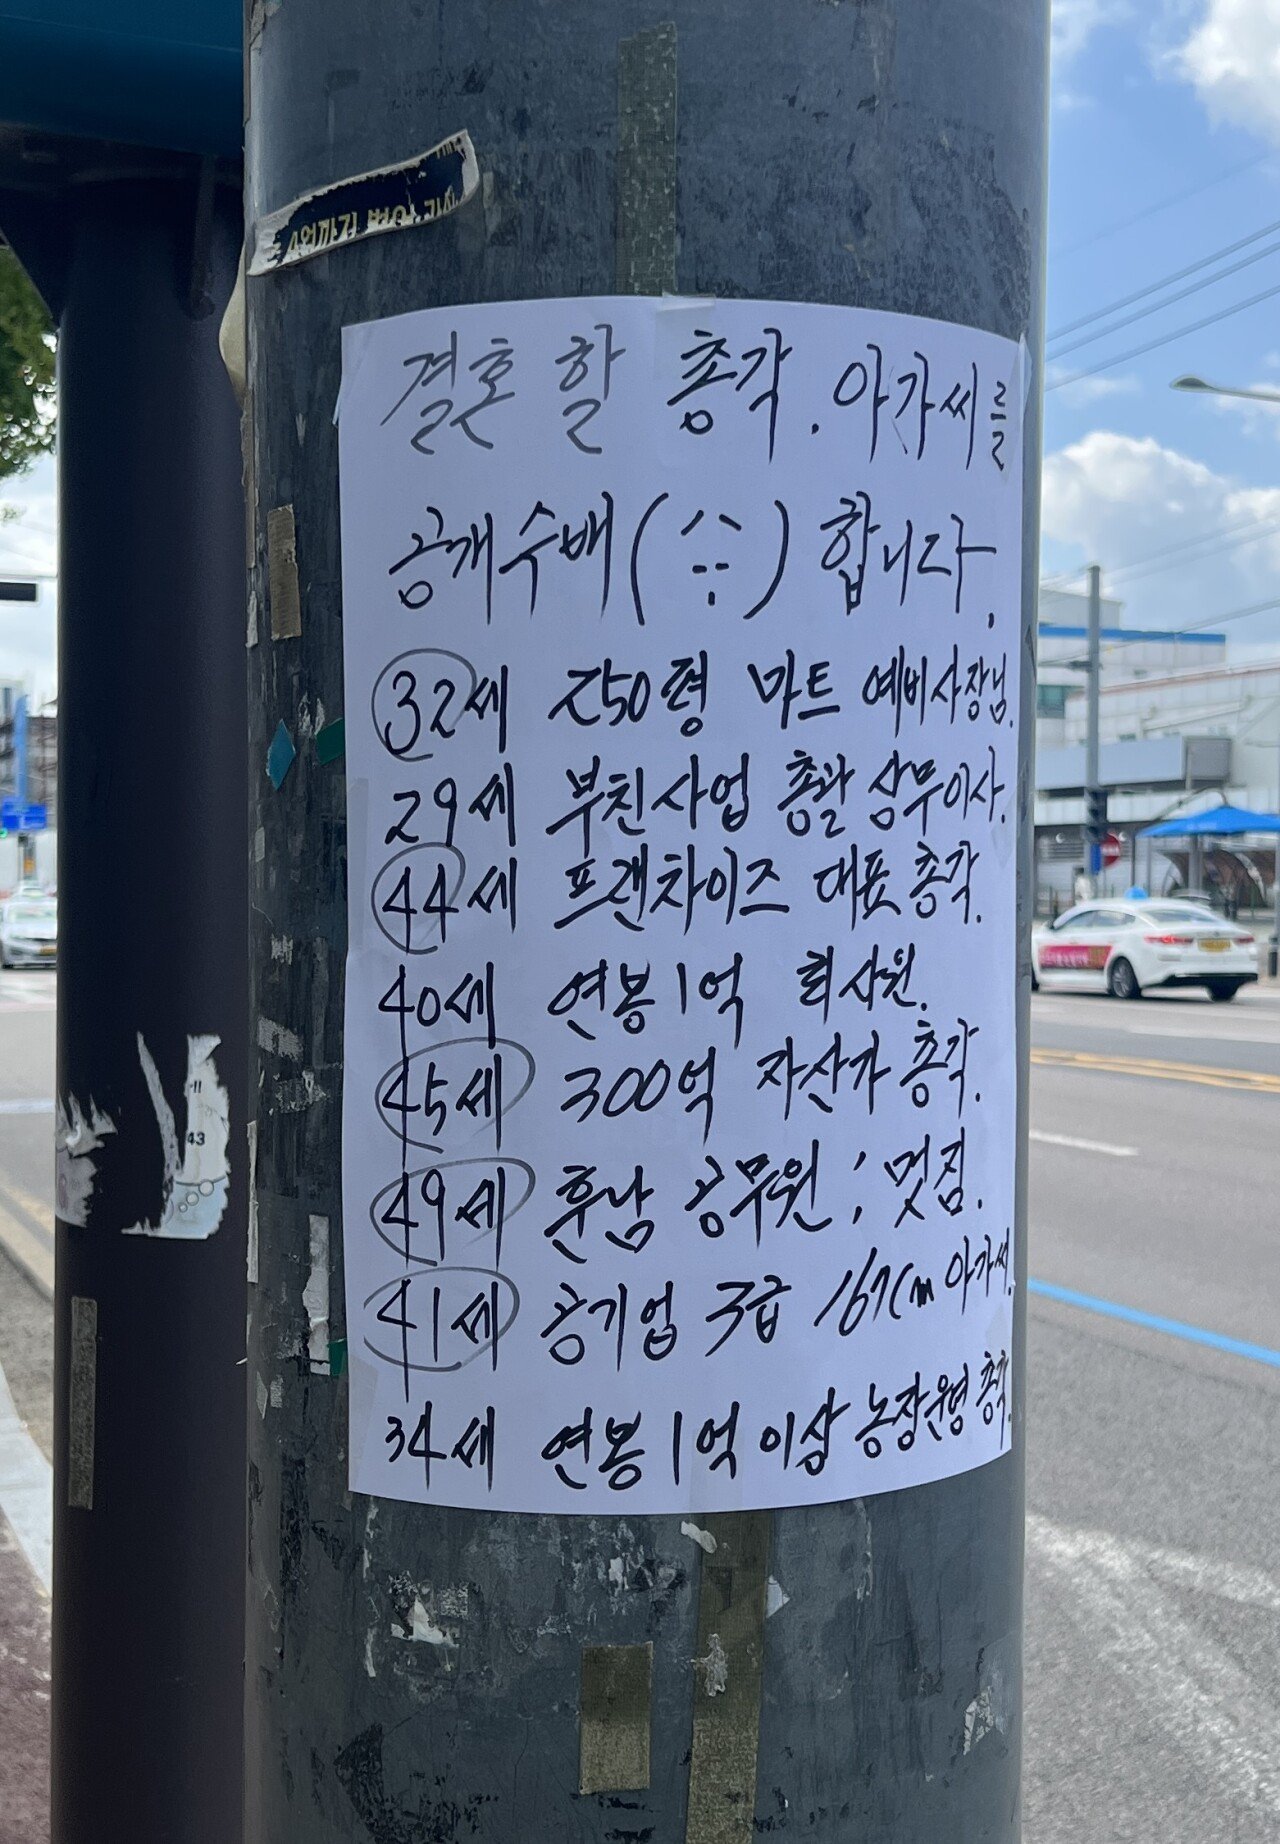 4억까지
결혼 할 총각. 아가씨를
공개수배(^^;;) 합니다.
32세 250평 마트 예비사장님.
29세 부친사업 총괄 상무이사.
44세 프랜차이즈 대표총각.
40세 연봉 1억 회사원.
45세 300억 자산가 총각.
49세 훈남 공무원; 멋짐.
41세 공기업 3급 167cm 아가씨.
34세 연봉 1억 이상 농장운영 총각.
43